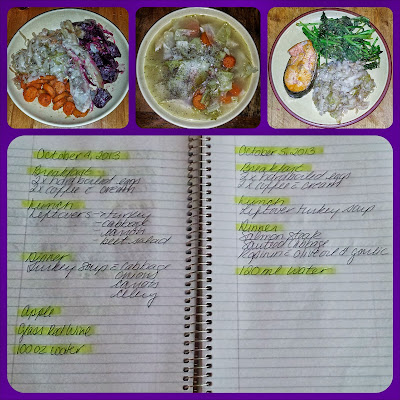 October 4, 2013
Breakfast
2x hardboiled eggs
2x coffee & cream
Lunch
Leftovers = turkey
= cabbage
= carrots
= beet salad
Dinner
Turkey Soup = cabbage
onions
carrots
celery
Apple
Glass Red Wine
100 oz water
October 5, 2013
Breakfast
2x hardboiled eggs
2x coffee & cream
Lunch
Leftover turkey soup
Dinner
Salmon steak
Sautéed cabbage
Rapini = olive oil & garlic
160 ml water